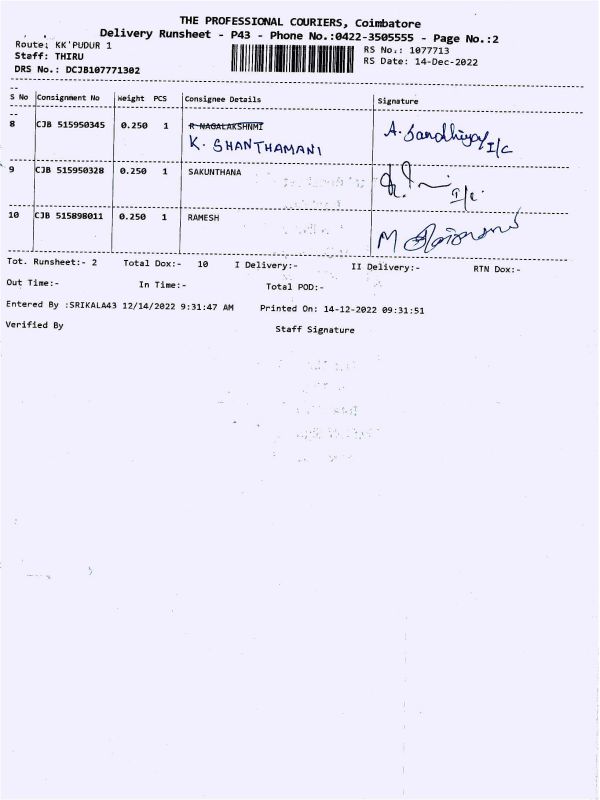 THE PROFESSIONAL COURIERS, Coimbatore
Delivery Runsheet - P43 - Phone No.:0422-3505555 - Page No.:2
Route: KK'PUDUR 1 RS No.: 1077713
Staff: THIRU RS Date: 14-Dec-2022
DRS No.: DCJB107771302
S No Consignment No Weight PCS Consignee Details Signature
8 CJB 515950345 0.250 1 R NAGALAKSHNMI A. Sandhiya I/C
K. SHANTHAMANI
9 CJB 515950328 0.250 1 SAKUNTHANA
10 CJB 515898011 0.250 1 RAMESH M
Tot. Runsheet:- 2 Total Dox:- 10 I Delivery:- II Delivery:- RTN Dox:-
Out Time:- In Time:- Total POD:-
Entered By :SRIKALA43 12/14/2022 9:31:47 AM Printed On: 14-12-2022 09:31:51
Verified By Staff Signature